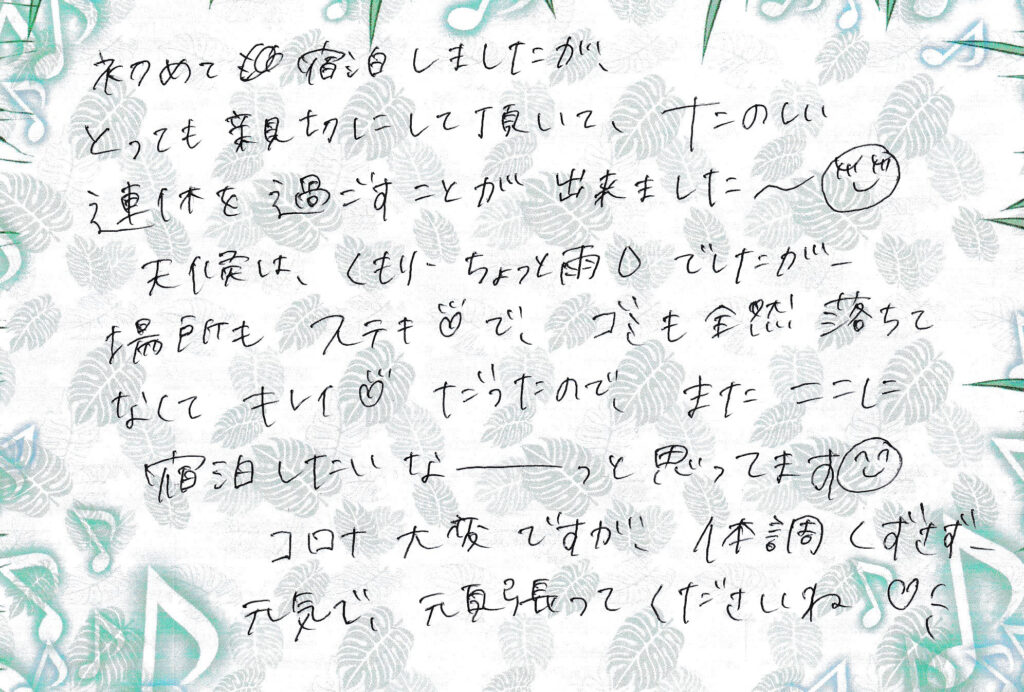 初めて宿泊しましたが、
とっても親切にして頂いて、たのしい
連休を過ごすことが出来ました〜
天候は、くもり、ちょっと雨でしたがー
場所もステキ♡で、ゴミも全然落ちて
なくてキレイ♡だったので、またここに
宿泊したいなーーっと思ってます
コロナ大変ですが、体調くずさず、
元気で、頑張ってくださいね♡